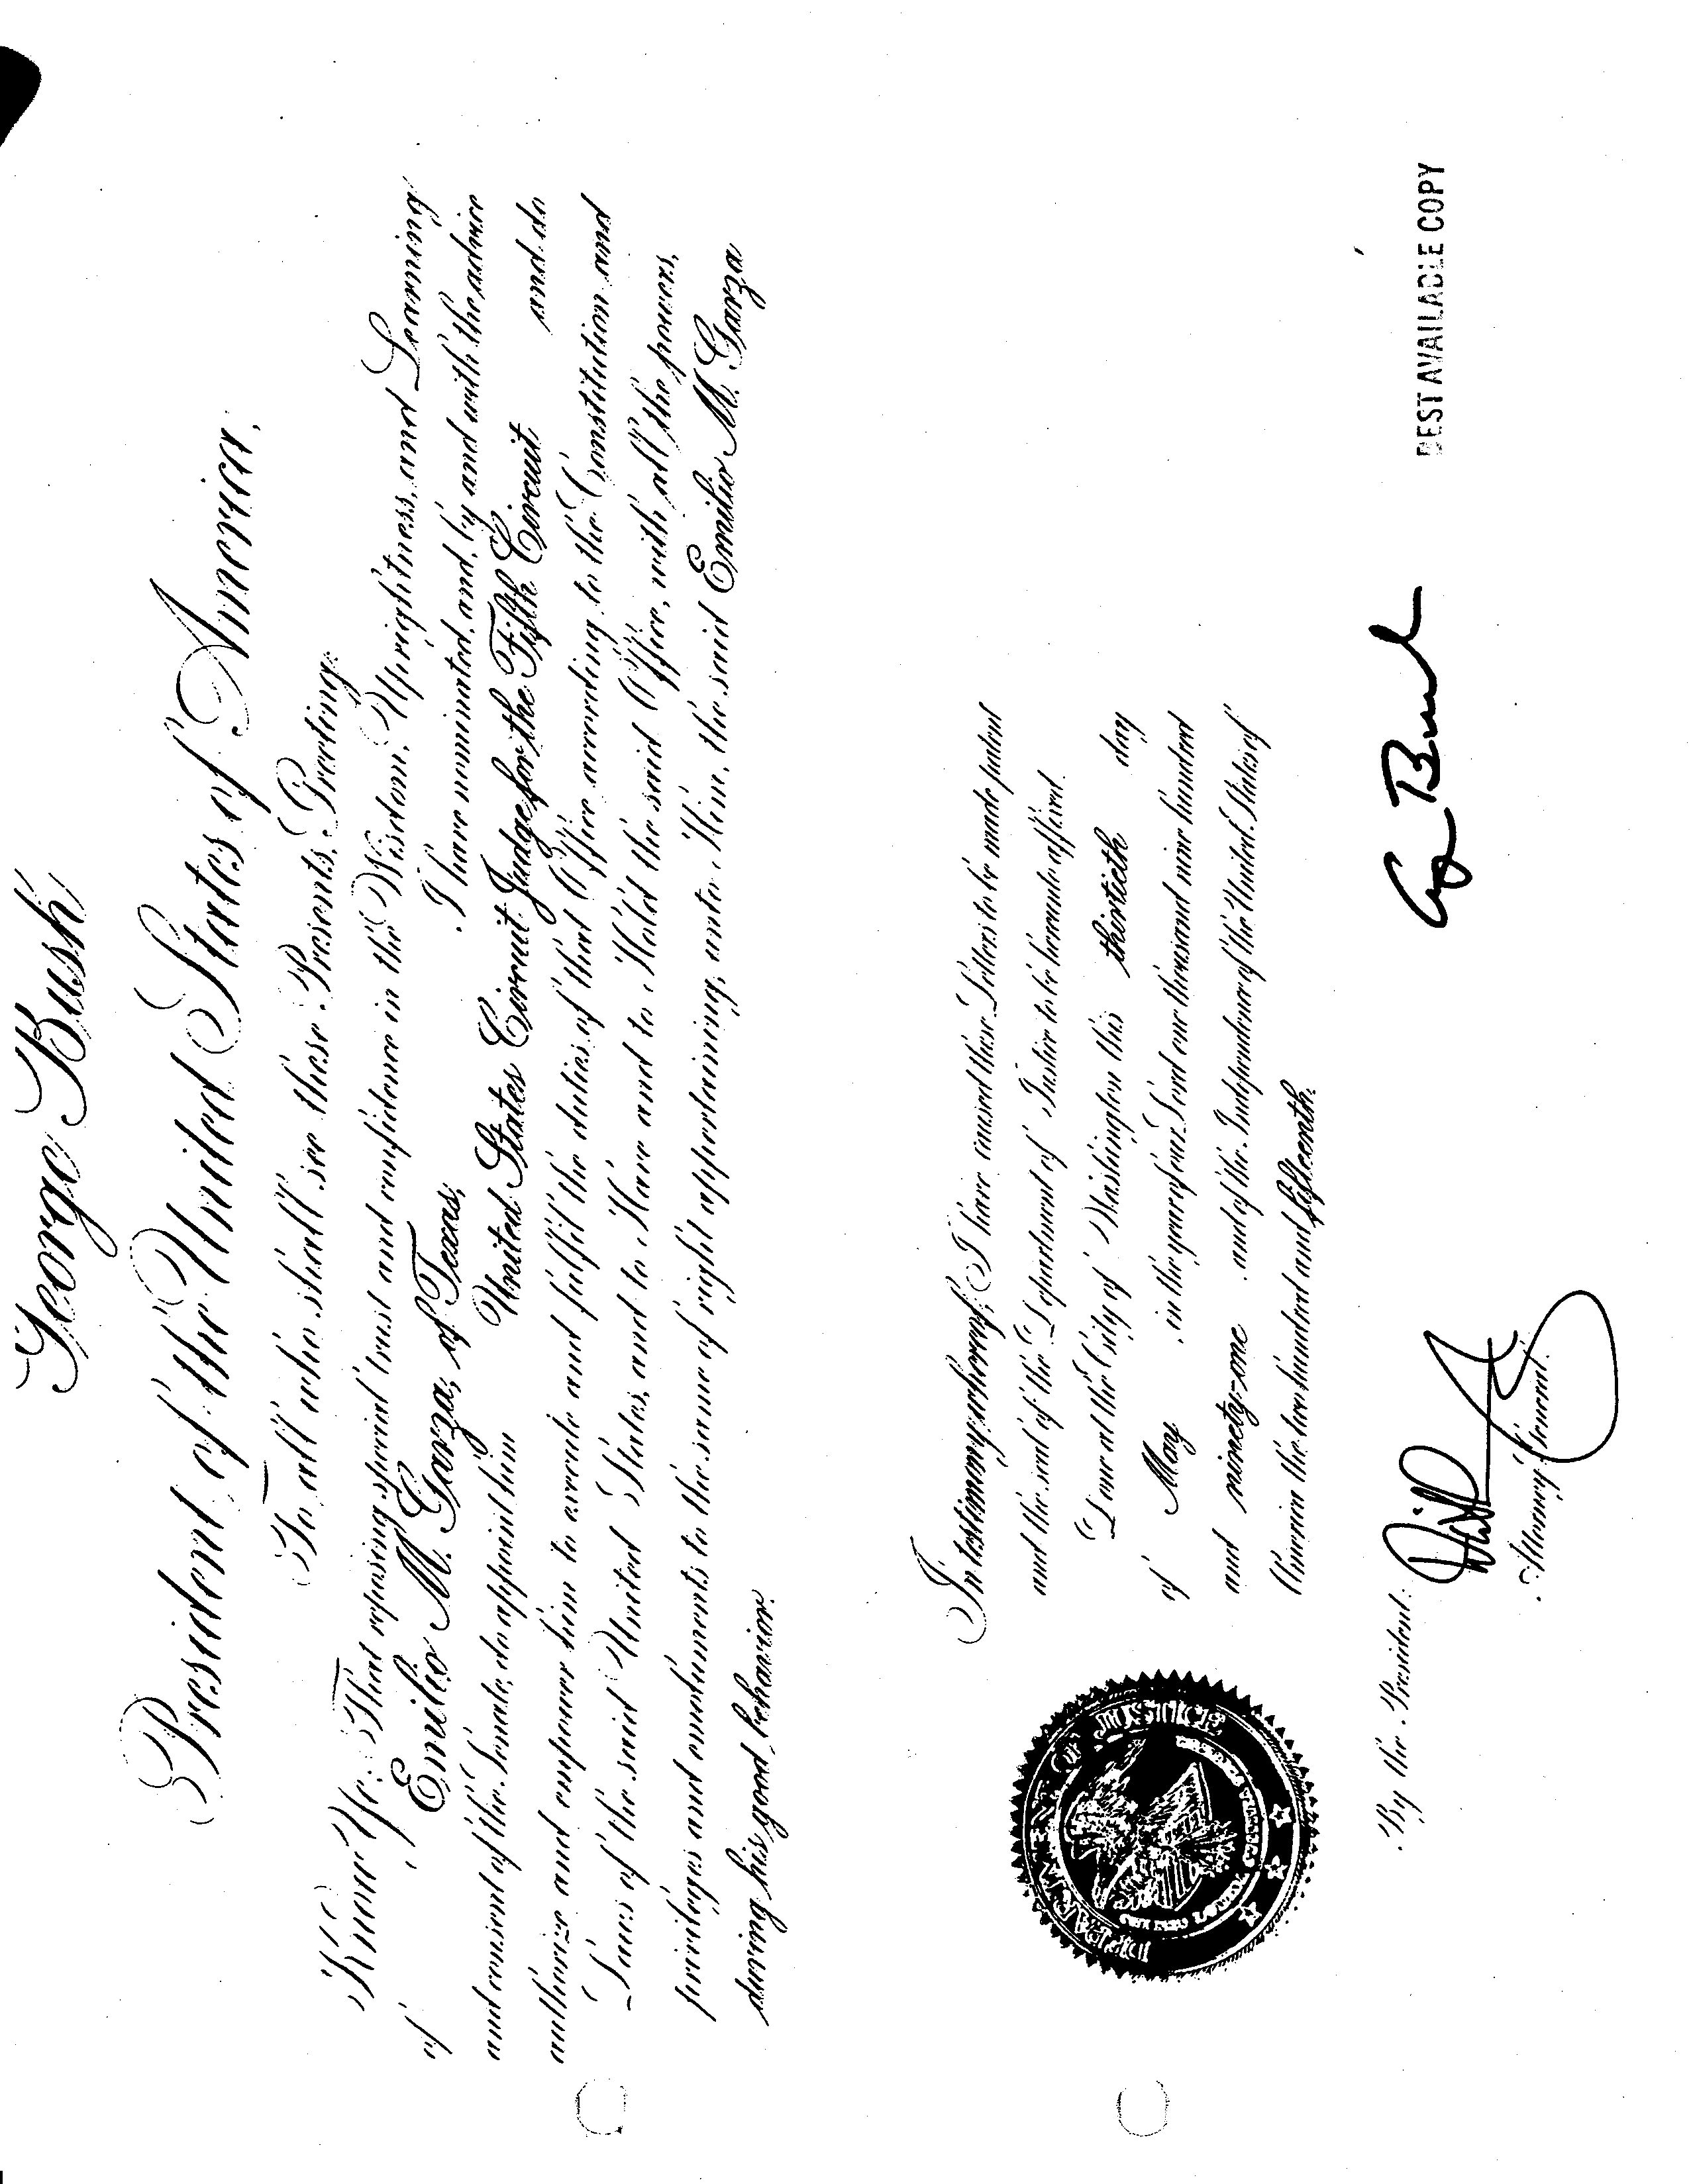 George Bush
President of the United States of America.
To all who shall see these Presents, Greeting:
Know Ye: That reposing special trust and confidence in the Wisdom, Uprightness, and Learning
of Emilio M. Garza, of Texas, I have nominated, and, by and with the advice
and consent of the Senate, do appoint him United States Circuit Judge for the Fifth Circuit and do
authorize and empower him to execute and fulfil the duties of that Office according to the Constitution and
Laws of the said United States, and to Have and to Hold the said Office, with all the powers,
privileges and emoluments to the same of right appertaining, unto Him, the said Emilio M. Garza
during his good behavior.
In testimony whereof, I have caused these Letters to be made patent
and the seal of the Department of Justice to be hereunto affixed.
Done at the City of Washington this thirtieth day
of May, in the year of our Lord one thousand nine hundred
and ninety-one, and of the Independence of the United States of
America the two hundred and fifteenth.
DEPARTMENT OF JUSTICE
G Bush
By the President:
Attorney General.
BEST AVAILABLE COPY